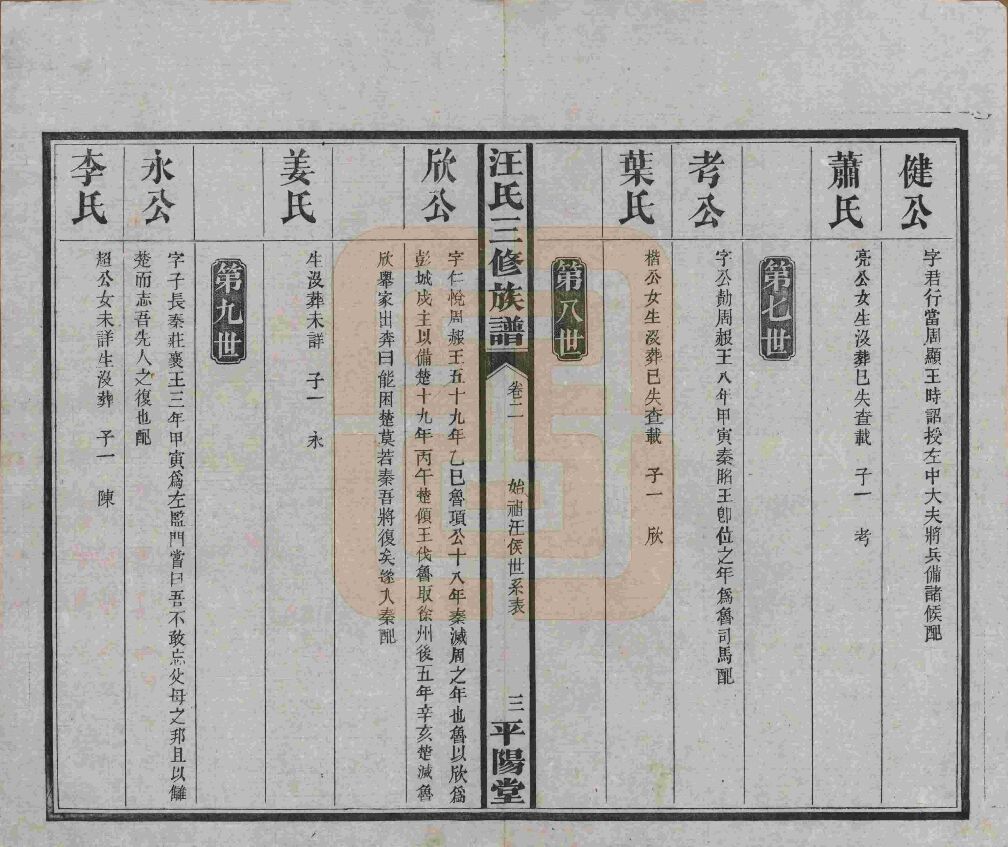 健公
字君行當周顯王時詔授左中大夫將兵備諸候配
蕭氏
亮公女生沒葬已失查載 子一 考
第七世
考公
字公勛周赧王八年甲寅秦昭王卽位之年爲魯司馬配
葉氏
楷公女生沒葬已失查載 子一 欣
第八世
汪氏三修族譜
卷二
始祖汪侯世系表
三
平陽堂
欣公
字仁悅周赧王五十九年乙巳魯頃公十八年秦滅周之年也魯以欣爲
彭城戍主以備楚十九年丙午楚傾王伐魯取徐州後五年辛亥楚滅魯
欣舉家出奔曰能困楚莫若秦吾將復矣遂入秦配
姜氏
生沒葬未詳 子一 永
第九世
永公
字子長秦莊襄王三年甲寅爲左監門嘗曰吾不敢忘父母之邦且以讎
楚而志吾先人之復也配
李氏
超公女未詳生沒葬 子一 陳